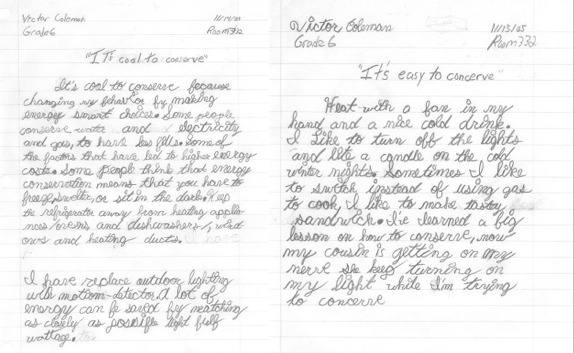 Victor Coleman 11/14/05
Grade 6 Room 332
"It's cool to conserve"
It's cool to conserve because
changing my behavior by making
energy smart choices. Some people
conserve water and electricity
and gas, to have less bills. Some of
the factors that have led to higher energy
costs. Some people think that energy
conservation means that you have to
freeze, swelter, or sit in the dark. Keep
the refrigerator away from heating applia-
nces/ovens and dishwashers/,
ows and heating ducts. I have
I have replace outdoor lighting
with motion-detector. A lot of
energy can be saved by matching
as closely as possible light bulb
wattage.
Victor Coleman 11/13/05
Grade 6 Room 332
"It's easy to concerve"
Heat with a fan in my
hand and a nice cold drink.
I like to turn off the lights
and lite a candle on the cold
winter nights. Sometimes I like
to switch instead of using gas
to cook, I like to make
sandwich. I've learned a big
lesson on how to conserve, now
my cousin is getting on my
nerve she keep turning on
my light while I'm trying
to concerve